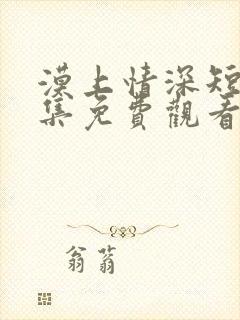 漠上情深短
集免費觀看
翁蓊